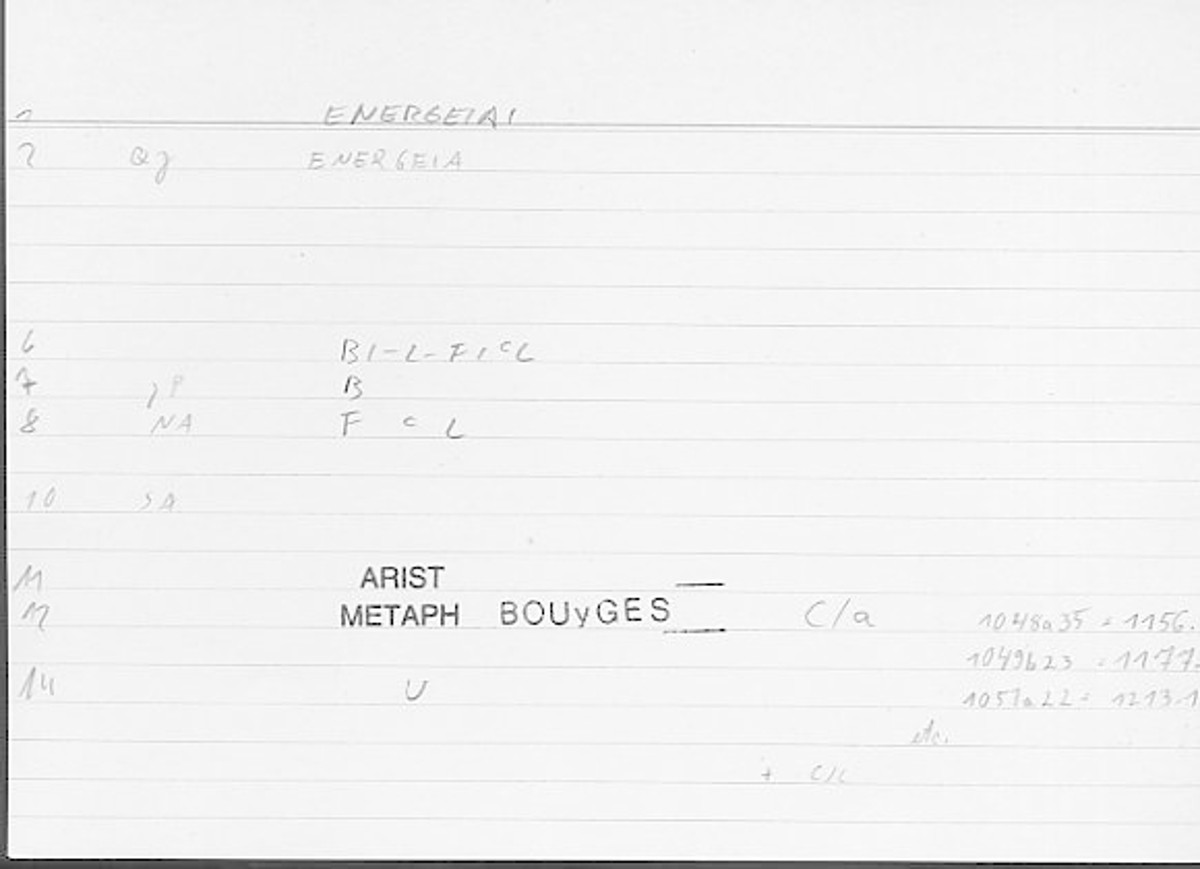 1 ENERGEIAI
2 Qj ENERGEIA
6 BI-L-FI CL
7 ;P B
8 NA F C L
10 >A
11 ARIST
12 METAPH BOUyGES C/a 1048a35 = 1156.
1049b23 = 1177
14 U 1051a22 = 1213.1
etc.
+ C/c